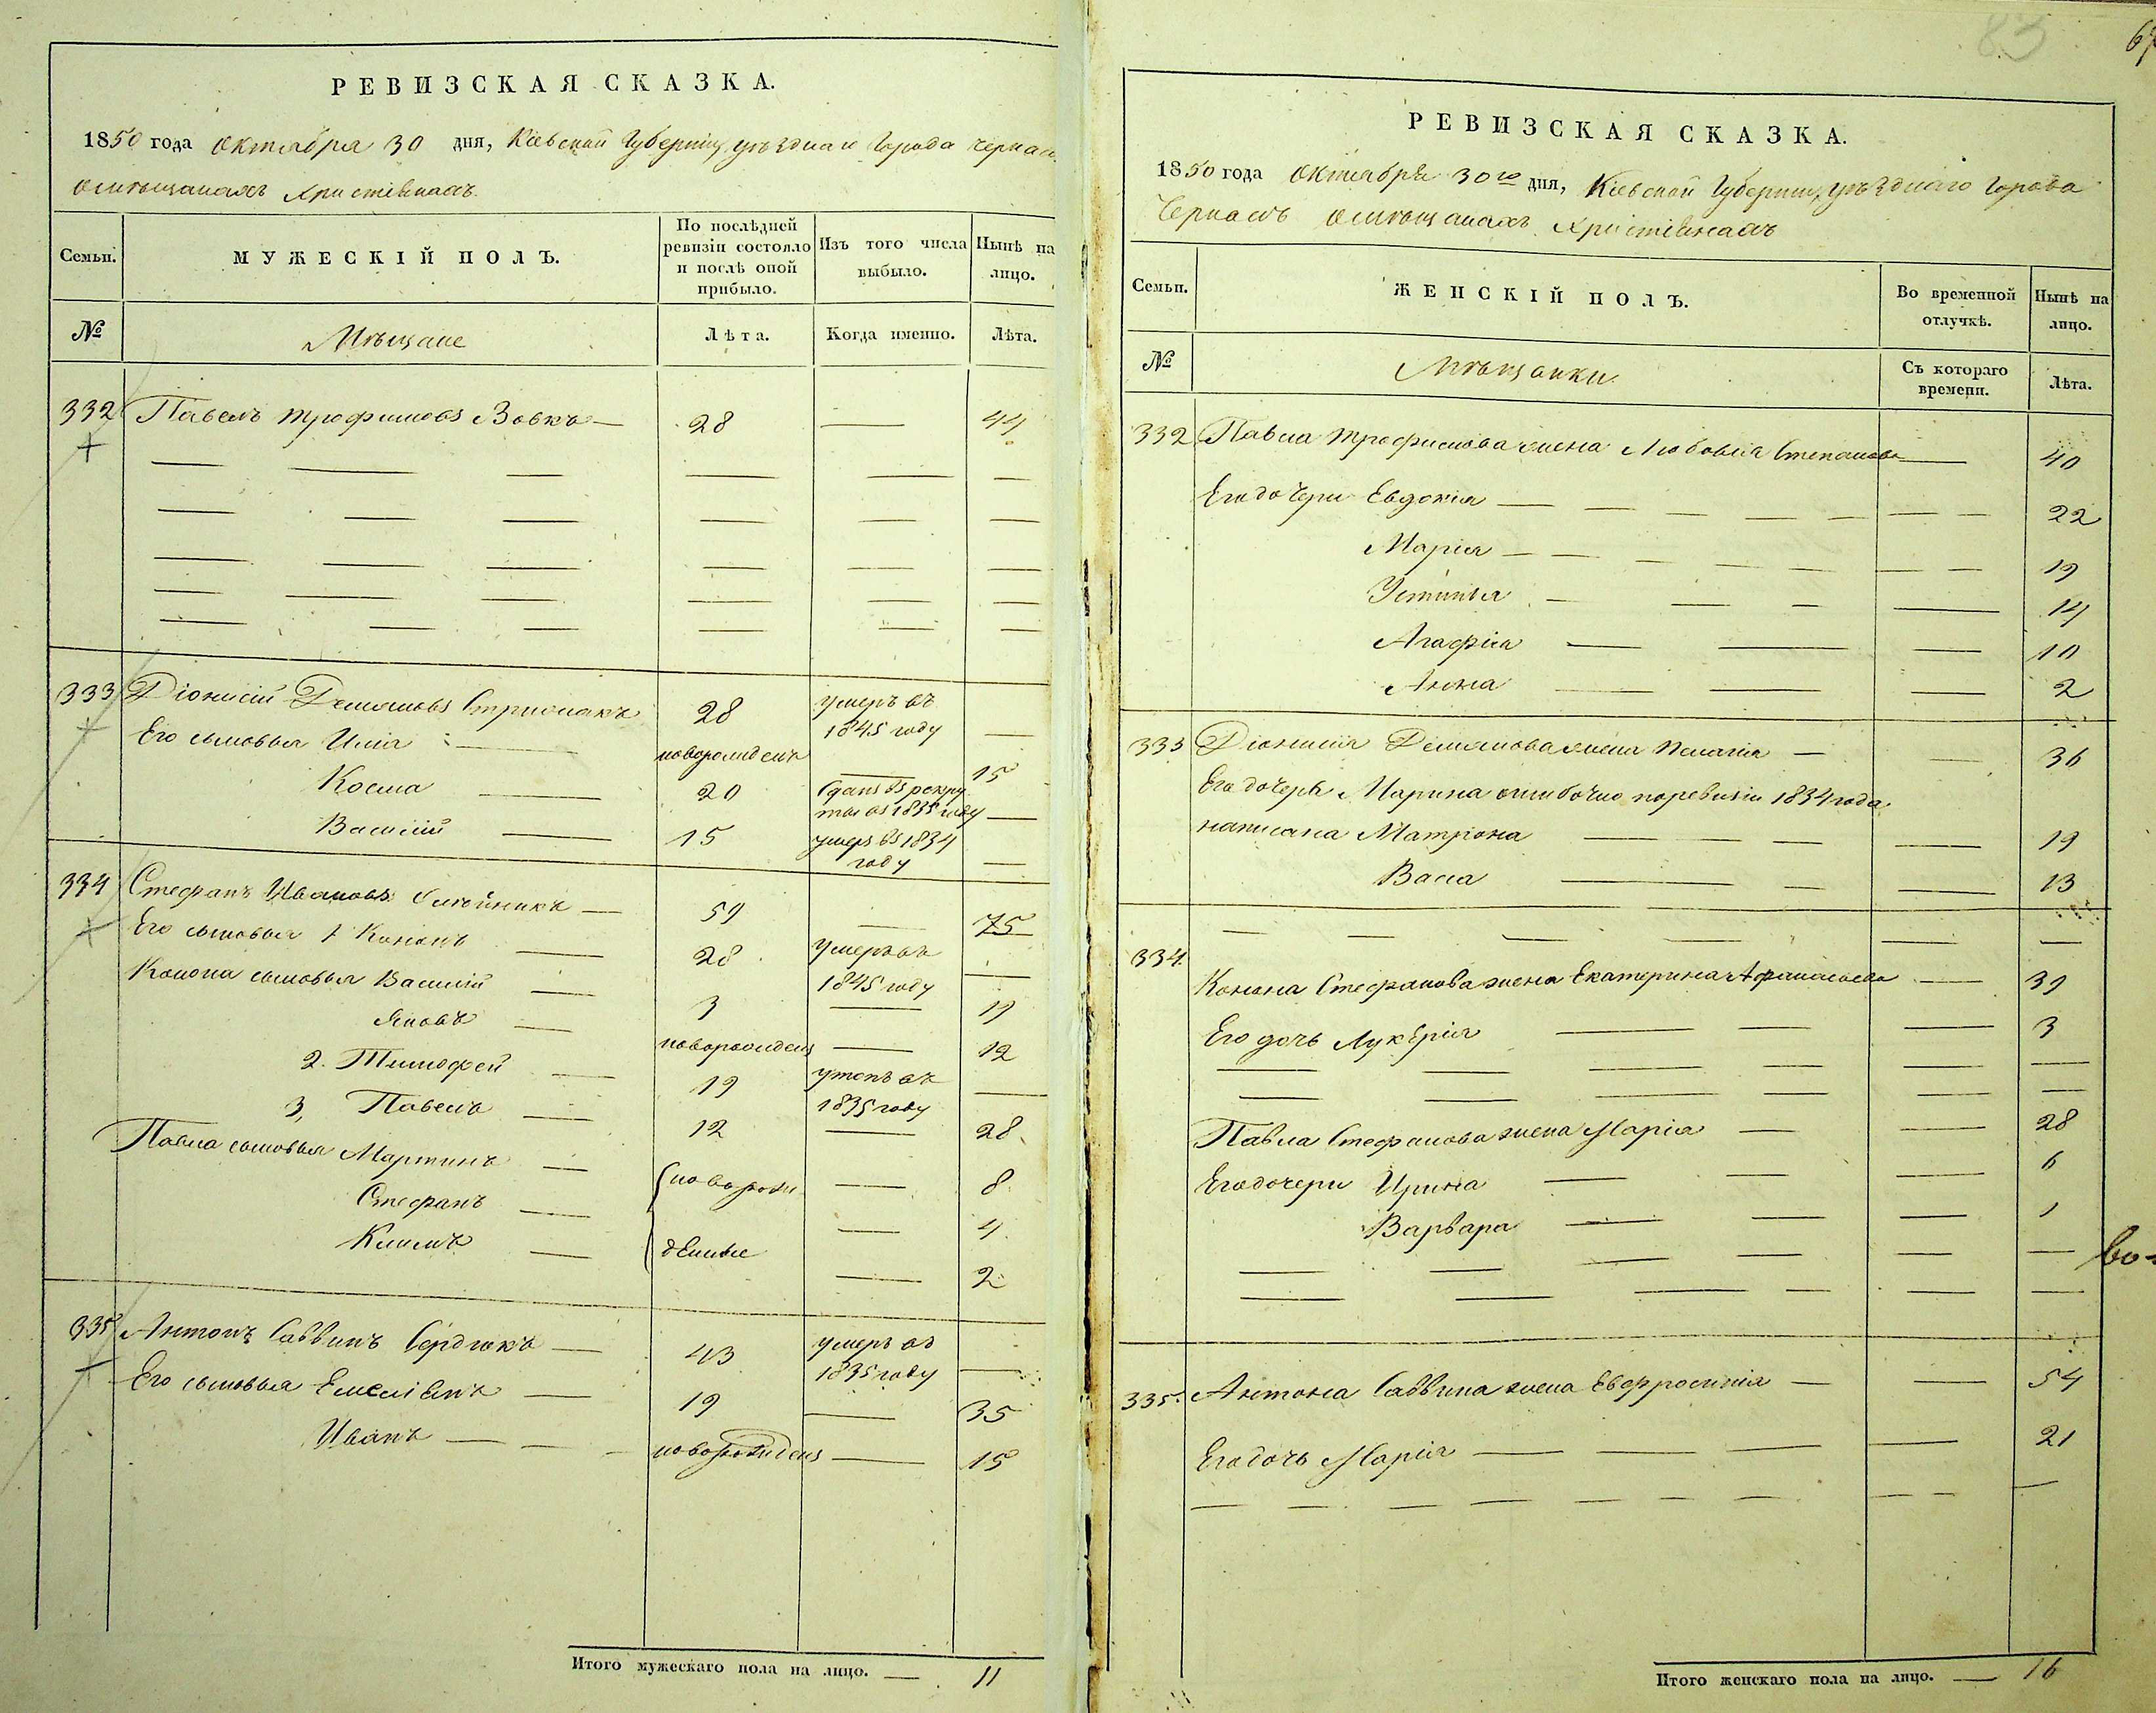 РЕВИЗСКАЯ СКАЗКА.
1850 года октября 30 дня, Кіевской Губерніи уѣзднаго Города Черкас
о мѣщанахъ христіянахъ.
Семьи.
МУЖЕСКІЙ ПОЛЪ.
По послѣдней ревизіи состояло и послѣ оной прибыло.
Изъ того числа выбыло.
Нынѣ на лицо.
№
Мѣщане
Лѣта.
Когда именно.
Лѣта.
332 Павелъ Трофимовъ Вовкъ — 28 — 44
333 Діонисій Демяновъ 28 умеръ въ 1845 году —
Его сыновья Илія — новорожденъ — 15
Косма — 20 сданъ въ рекруты въ 1835 году —
Василій — 15 умеръ въ 1834 году —
334 Стефанъ Ивановъ Олѣйникъ — 59 — 75
Его сыновья 1 Кононъ — 28 умеръ въ 1845 году —
Конона сыновья Василій — 3 — 19
Яковъ — новорожденъ — 12
2. Тимофей — 19 утопъ въ 1835 году —
3, Павелъ — 12 — 28
Павла сыновья Мартинъ — новорожденные — 8
Стефанъ — — 4
Климъ — — 2
335 Антонъ Саввинъ Сердюкъ — 43 умеръ въ 1835 году —
Его сыновья Емеліянъ — 19 — 35
Иванъ — новорожденъ — 15
Итого мужескаго пола на лицо. — 11
83
67
РЕВИЗСКАЯ СКАЗКА.
1850 года октября 30го дня, Кіевской Губерніи, уѣзднаго Города
Черкасъ о мѣщанахъ христіянахъ
Семьи.
ЖЕНСКІЙ ПОЛЪ.
Во временной отлучкѣ.
Нынѣ на лицо.
№
Мѣщанки
Съ котораго времени.
Лѣта.
332 Павла Трофимова жена Любовія Степанова — 40
Его дочери Евдокія — 22
Марія — 19
Устинія — 14
Агафія — 10
Анна — 2
333 Діонисія Демянова жена Пелагія — 36
Его дочери Марина ошибочно по ревизіи 1834 года
написана Матрона — 19
Васа — 13
334.
Конона Стефанова жена Екатерина Афанасьева — 39
Его дочь Лукерія — 3
Павла Стефанова жена Марія — 28
Его дочери Ирина — 6
Варвара — 1
335. Антона Саввина жена Евфросинія — 54
Его дочь Марія — 21
Итого женскаго пола на лицо. — 16